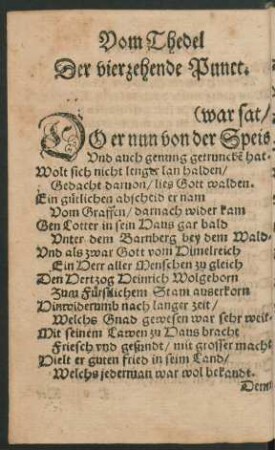 Vom Thedel
Der vierzehende Punct.
(war sat/
DO er nun von der Speis
Vnd auch genung getrunckẽ hat.
Wolt sich nicht lenger lan halden/
Gedacht daruon/ lies Gott walden.
Ein gütlichen abscheid er nam
Vom Graffen/ darnach wider kam
Gen Lotter in sein Haus gar bald
Vnter dem Barnberg bey dem Wald.
Vnd als zwar Gott vom Himelreich
Ein Herr aller Menschen zu gleich
Den Hertzog Heinrich Wolgeborn
Zum Fürstlichem Stam auserkorn
Hinwiderumb nach langer zeit/
Welchs Gnad gewesen war sehr weit.
Mit seinem Lawen zu Haus bracht
Friesch vnd gesundt/ mit grosser macht
Hielt er guten fried in seim Land/
Welchs jederman war wol bekandt.
Dem